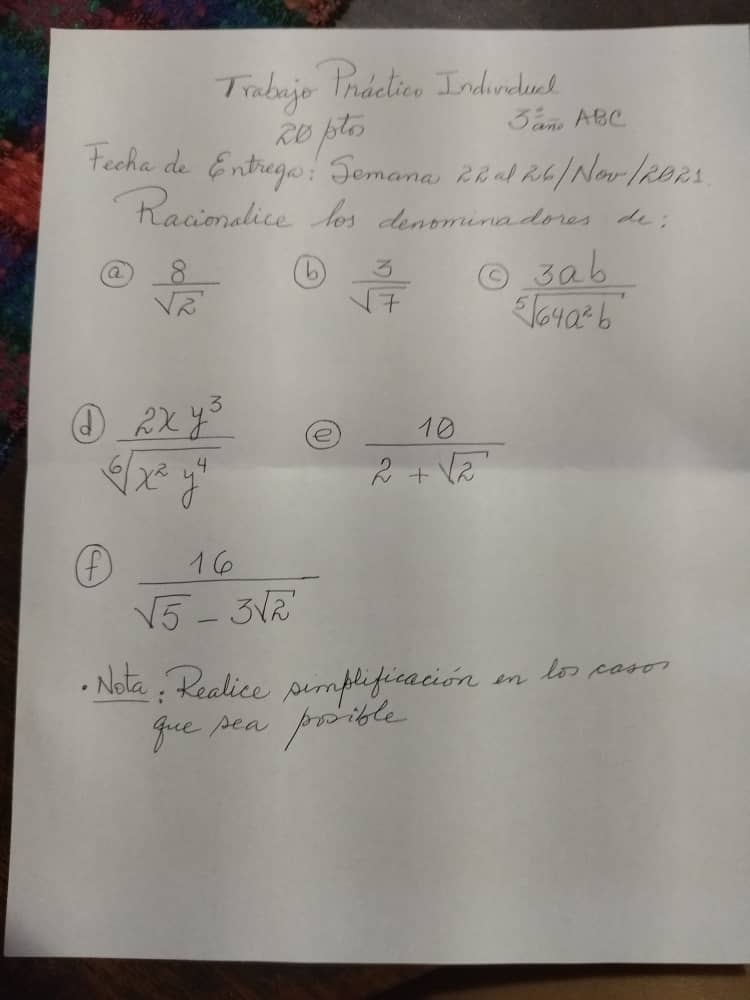 Trabajo Práctico Individual
20 ptos 3er año ABC
Fecha de Entrega: Semana 22 al 26/Nov/2021.
Racionalice los denominadores de:
ⓐ 8/√2 ⓑ 3/√7 ⓒ 3ab/⁵√64a²b
ⓓ 2xy³/⁶√x²y⁴ ⓔ 10/2+√2
ⓕ 16/√5-3√2
• Nota: Realice simplificación en los casos
que sea posible